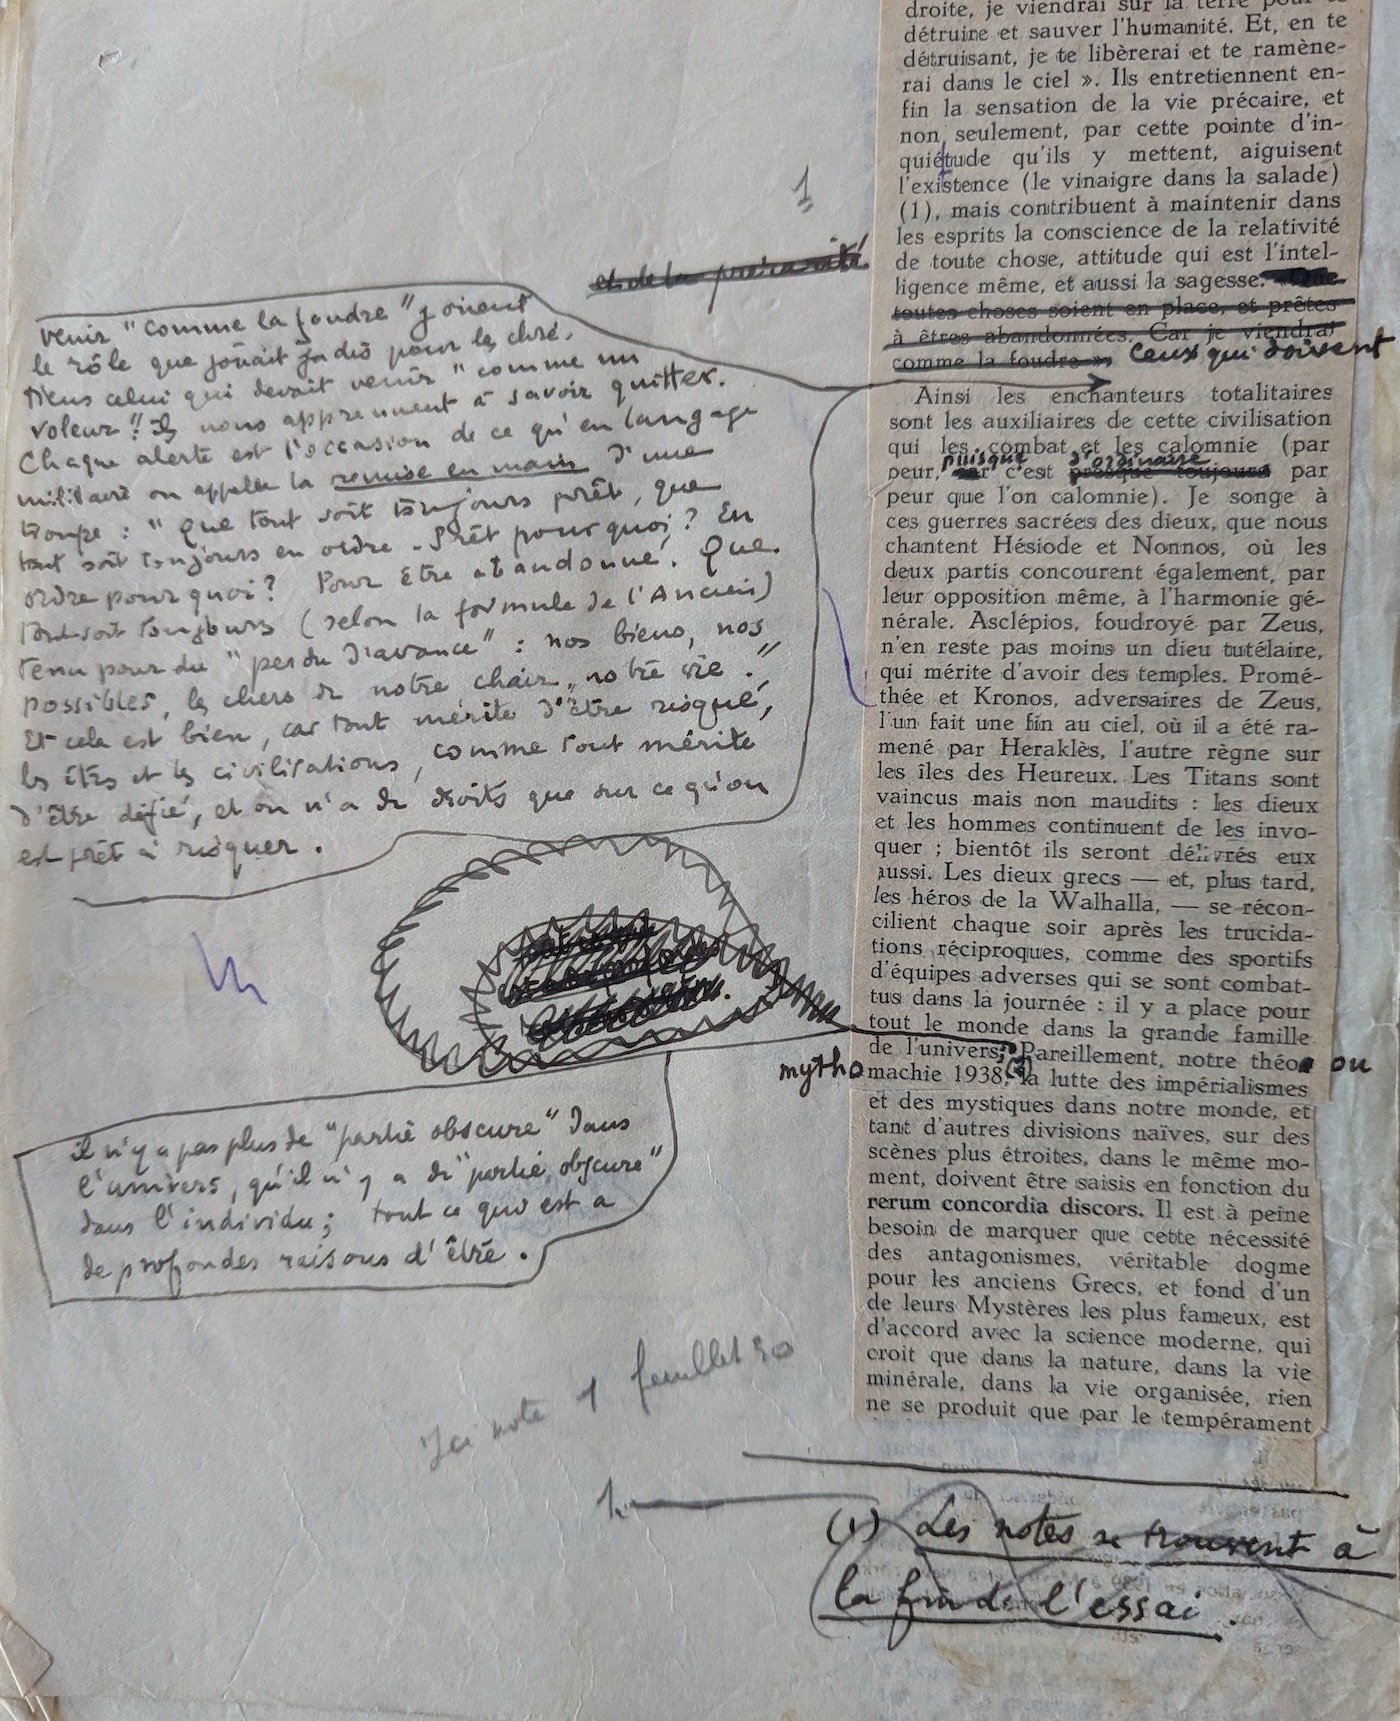 droite, je viendrai sur la terre pour te
détruire et sauver l'humanité. Et, en te
détruisant, je te libèrerai et te ramène-
rai dans le ciel ». Ils entretiennent en-
fin la sensation de la vie précaire, et
non seulement, par cette pointe d'in-
quiétude qu'ils y mettent, aiguisent
l'existence (le vinaigre dans la salade)
(1), mais contribuent à maintenir dans
les esprits la conscience de la relativité
et de la précarité
de toute chose, attitude qui est l'intel-
ligence même, et aussi la sagesse. Que
toutes choses soient en place, et prêtes
à êtres abandonnées. Car je viendrai
comme la foudre ». Ceux qui doivent
1
venir "comme la foudre" jouent
le rôle que jouait jadis pour les chré-
tiens celui qui devait venir "comme un
voleur". Ils nous apprennent à savoir quitter.
Chaque alerte est l'occasion de ce qu'en langage
militaire on appelle la remise en main d'une
troupe : "Que tout soit toujours prêt, que
tout soit toujours en ordre. Prêt pourquoi ? En
ordre pourquoi ? Pour être abandonné. Que
tout soit toujours (selon la formule de l'Ancien)
tenu pour du "perdu d'avance" : nos biens, nos
possibles, les chers de notre chair, notre vie."
Et cela est bien, car tout mérite d'être risqué,
les êtres et les civilisations, comme tout mérite
d'être défié, et on n'a de droits que sur ce qu'on
est prêt à risquer.
Ainsi les enchanteurs totalitaires
sont les auxiliaires de cette civilisation
qui les combat et les calomnie (par
puisque d'ordinaire
peur, car c'est presque toujours par
peur que l'on calomnie). Je songe à
ces guerres sacrées des dieux, que nous
chantent Hésiode et Nonnos, où les
deux partis concourent également, par
leur opposition même, à l'harmonie gé-
nérale. Asclépios, foudroyé par Zeus,
n'en reste pas moins un dieu tutélaire,
qui mérite d'avoir des temples. Promé-
thée et Kronos, adversaires de Zeus,
l'un fait une fin au ciel, où il a été ra-
mené par Heraklès, l'autre règne sur
les îles des Heureux. Les Titans sont
vaincus mais non maudits : les dieux
et les hommes continuent de les invo-
quer ; bientôt ils seront délivrés eux
aussi. Les dieux grecs — et, plus tard,
les héros de la Walhalla, — se récon-
cilient chaque soir après les trucida-
tions réciproques, comme des sportifs
d'équipes adverses qui se sont combat-
tus dans la journée : il y a place pour
tout le monde dans la grande famille
de l'univers; Pareillement, notre théo ou
mythomachie 1938, (1) la lutte des impérialismes
et des mystiques dans notre monde, et
tant d'autres divisions naïves, sur des
scènes plus étroites, dans le même mo-
ment, doivent être saisis en fonction du
rerum concordia discors. Il est à peine
besoin de marquer que cette nécessité
des antagonismes, véritable dogme
pour les anciens Grecs, et fond d'un
de leurs Mystères les plus fameux, est
d'accord avec la science moderne, qui
croit que dans la nature, dans la vie
minérale, dans la vie organisée, rien
ne se produit que par le tempérament
il n'y a pas plus de "partie obscure" dans
l'univers, qu'il n'y a de "partie obscure"
dans l'individu ; tout ce qui est a
de profondes raisons d'être.
Ici note 1 feuillet 30
1.
(1) Les notes se trouvent à
la fin de l'essai.